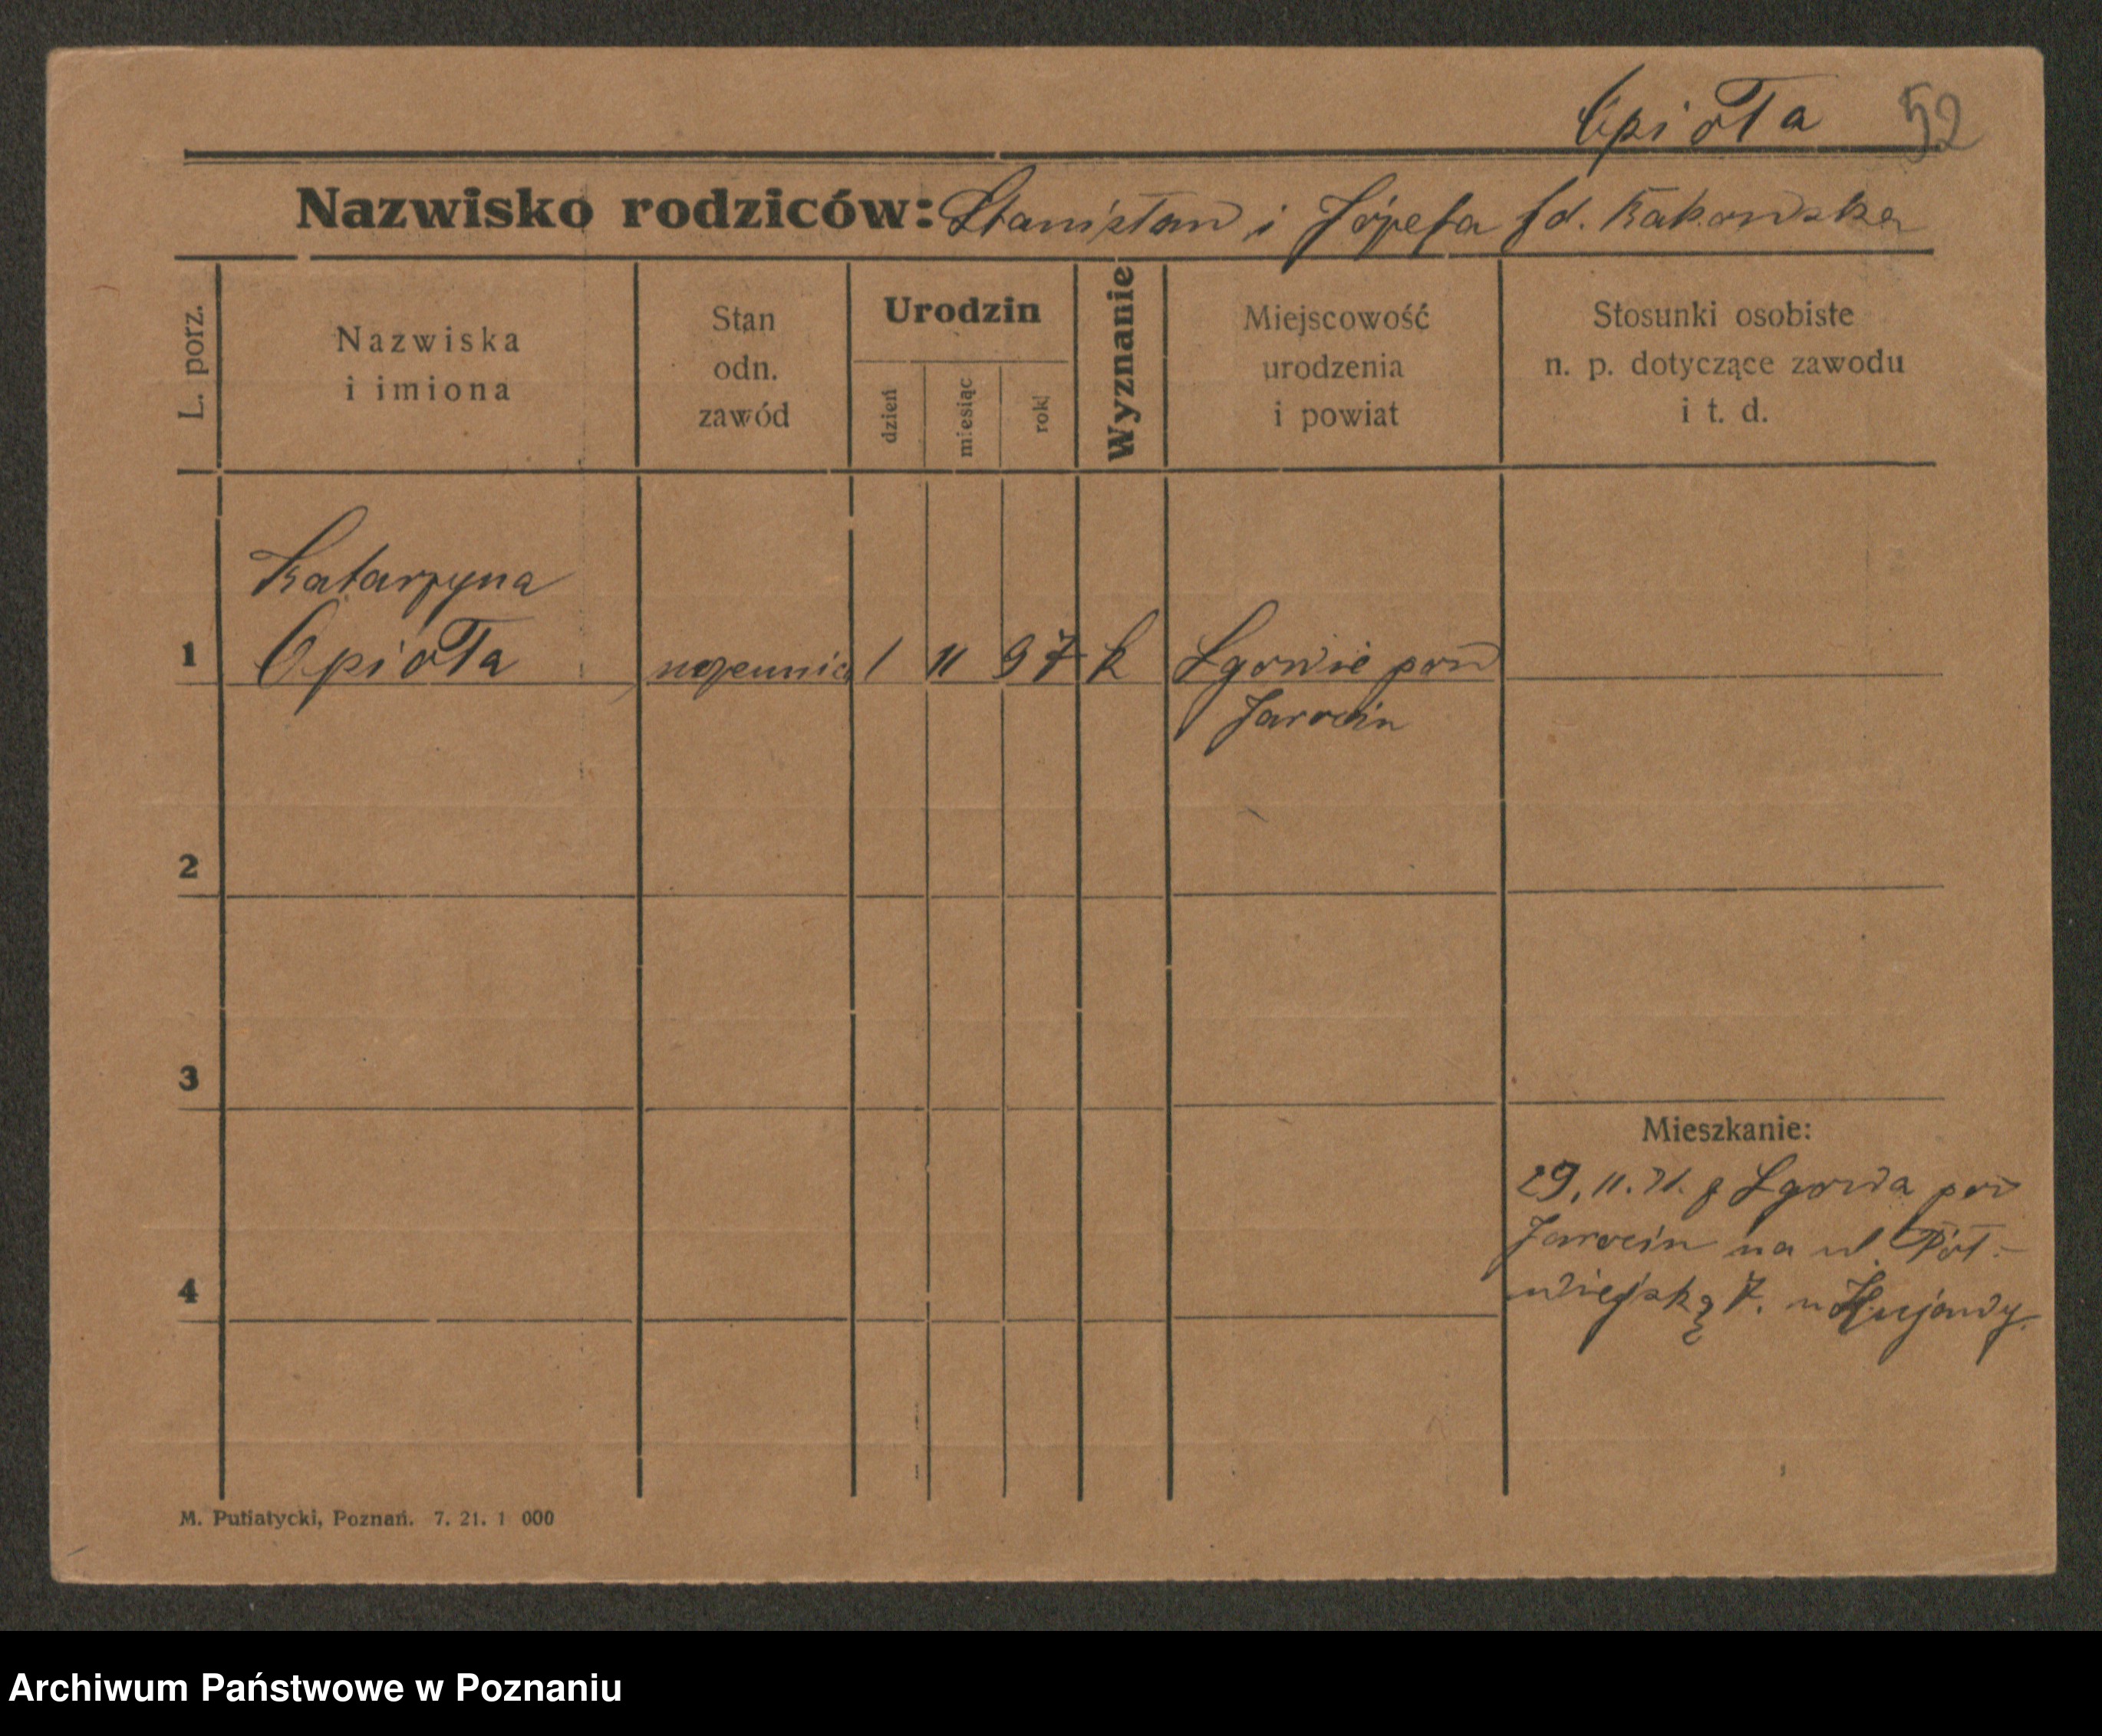 Opioła 52
Nazwisko rodziców: Stanisław i Józefa Kakowska
L. porz.
Nazwiska
i imiona
Stan
odn.
zawód
Urodzin
dzień
miesiąc
rok
Wyznanie
Miejscowość
urodzenia
i powiat
Stosunki osobiste
n. p. dotyczące zawodu
i t. d.
Katarzyna
1 Opioła uczennica 1 11 97 k Lgowie pow
Jarocin
2
3
Mieszkanie:
29. 11. 21. z Lgowa pow
Jarocin na ul. Pół-
4 wiejską 7. u Kujawy.
M. Putiatycki, Poznań. 7. 21. 1 000
Archiwum Państwowe w Poznaniu